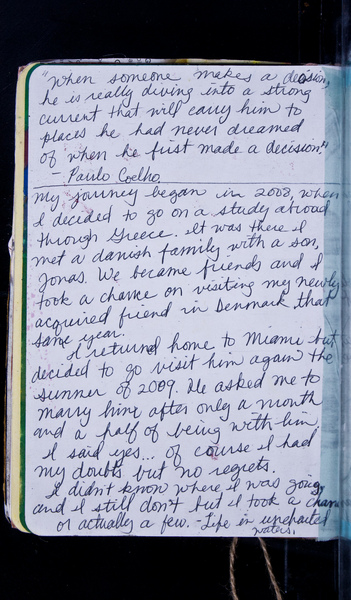 "When someone makes a decision,
he is really diving into a strong
current that will carry him to
places he had never dreamed
of when he first made a decision."
- Paulo Coelho
My journey began in 2008, when
I decided to go on a study abroad
through Greece. It was there I
met a danish family with a son,
Jonas. We became friends and I
took a chance on visiting my newly
acquired friend in Denmark that
same year.
I returned home to Miami but
decided to go visit him again the
summer of 2009. He asked me to
marry him after only a month
and a half of being with him.
I said yes... of course I had
my doubts but no regrets.
I didn't know where I was going
and I still don't but I took a chance
or actually a few. Life in uncharted
waters.